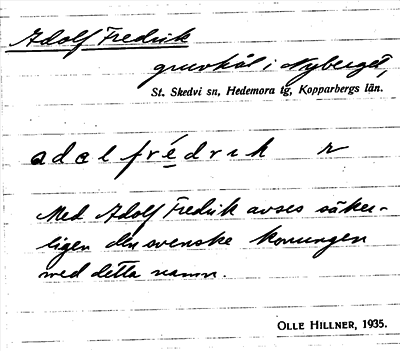 Adolf Fredrik
gruvhål i Nyberget,
St. Skedvi sn, Hedemora tg, Kopparbergs län.
adɑl frédrɩk r
Med Adolf Fredrik avses säker-
ligen den svenske konungen
med detta namn.
OLLE HILLNER, 1935.